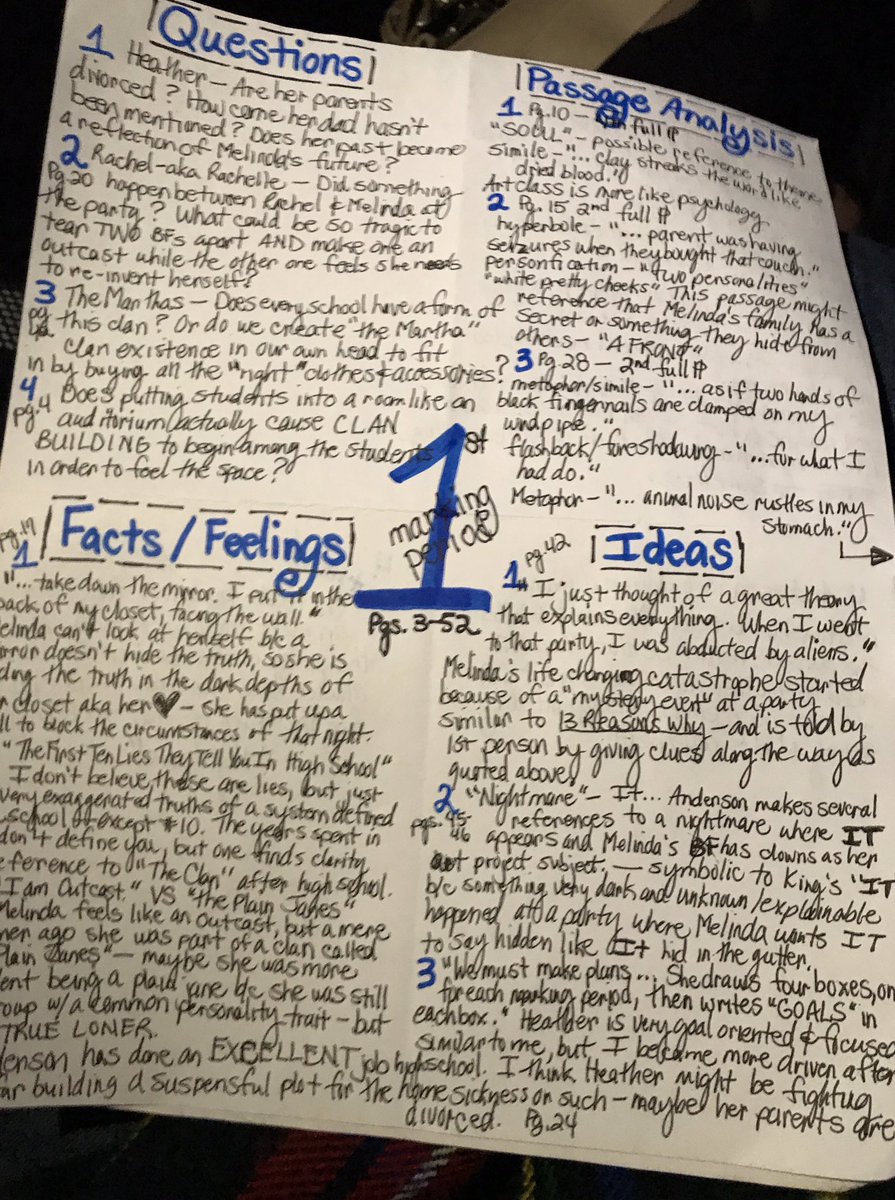 Questions
1 Heather – Are her parents
divorced? How come her dad hasn't
been mentioned? Does her past become
a reflection of Melinda's future?
2 Rachel-aka Rachelle – Did something
Pg.20 happen between Rachel & Melinda at
the party? What could be so tragic to
tear TWO BFs apart AND make one an
outcast while the other one feels she needs
to re-invent herself?
3 The Marthas – Does every school have a form of
pg this clan? Or do we create "the Martha"
clan existence in our own head to fit
in by buying all the "right" clothes & accessories?
4 Does putting students into a room like an
pg.4 auditorium actually cause CLAN
BUILDING to begin among the students
in order to feel the space?
Passage Analysis
1 Pg.10 – full ¶
"SOUL" – possible reference to theme
simile – "... clay streaks the word like
dried blood."
Art class is more like psychology
2 Pg. 15 2nd full ¶
hyperbole – "... parent was having
seizures when they bought that couch."
personfication – "two personalities"
"white pretty cheeks" This passage might
reference that Melinda's family has a
secret or something they hide from
others – "A FRONT"
3 Pg.28 – 2nd full ¶
metaphor/simile – "... as if two hands of
black fingernails are clamped on my
windpipe."
flashback/foreshodowing – "...for what I
had do."
Metaphor – "... animal noise rustles in my
stomach."
1st
marking
period
Pgs. 3-52
Facts/Feelings
pg.17
1 "... take down the mirror. I put it in the
back of my closet, facing the wall."
elinda can't look at herself b/c a
rror doesn't hide the truth, so she is
ding the truth in the dark depths of
r closet aka her ♥ – she has put up a
ll to block the circumstances of that night.
"The First Ten Lies They Tell You In High School"
I don't believe these are lies, but just
very exaggerated truths of a system defined
school of except #10. The years spent in
don't define you, but one finds clarity
eference to "The Clan" after high school.
I am Outcast." VS "the Plain Janes"
Melinda feels like an outcast, but a mere
mer ago she was part of a clan called
Plain Janes" – maybe she was more
ent being a plain jane b/c she was still
roup w/a common personality trait – but
TRUE LONER.
derson has done an EXCELLENT job
ar building a suspensful plot for the
Ideas
pg.42
1 "I just thought of a great theory
that explains everything. When I went
to that party, I was abducted by aliens."
Melinda's life changing catastrophe started
because of a "mystery event" at a party
similar to 13 Reasons Why – and is told by
1st person by giving clues along the way as
quoted above.
2 "Nightmare" – It... Anderson makes several
pgs. 45-46 references to a nightmare where IT
appears and Melinda's BF has clowns as her
art project subject. – symbolic to King's "IT
b/c something very dark and unknown/explainable
happened at a party where Melinda wants IT
to say hidden like It hid in the gutter.
3 "We must make plans... She draws four boxes, on
for each marking period, then writes "GOALS" in
each box." Heather is very goal oriented & focused
similar to me, but I became more driven after
high school. I think Heather might be fighting
home sickness or such – maybe her parents are
divorced. Pg.24